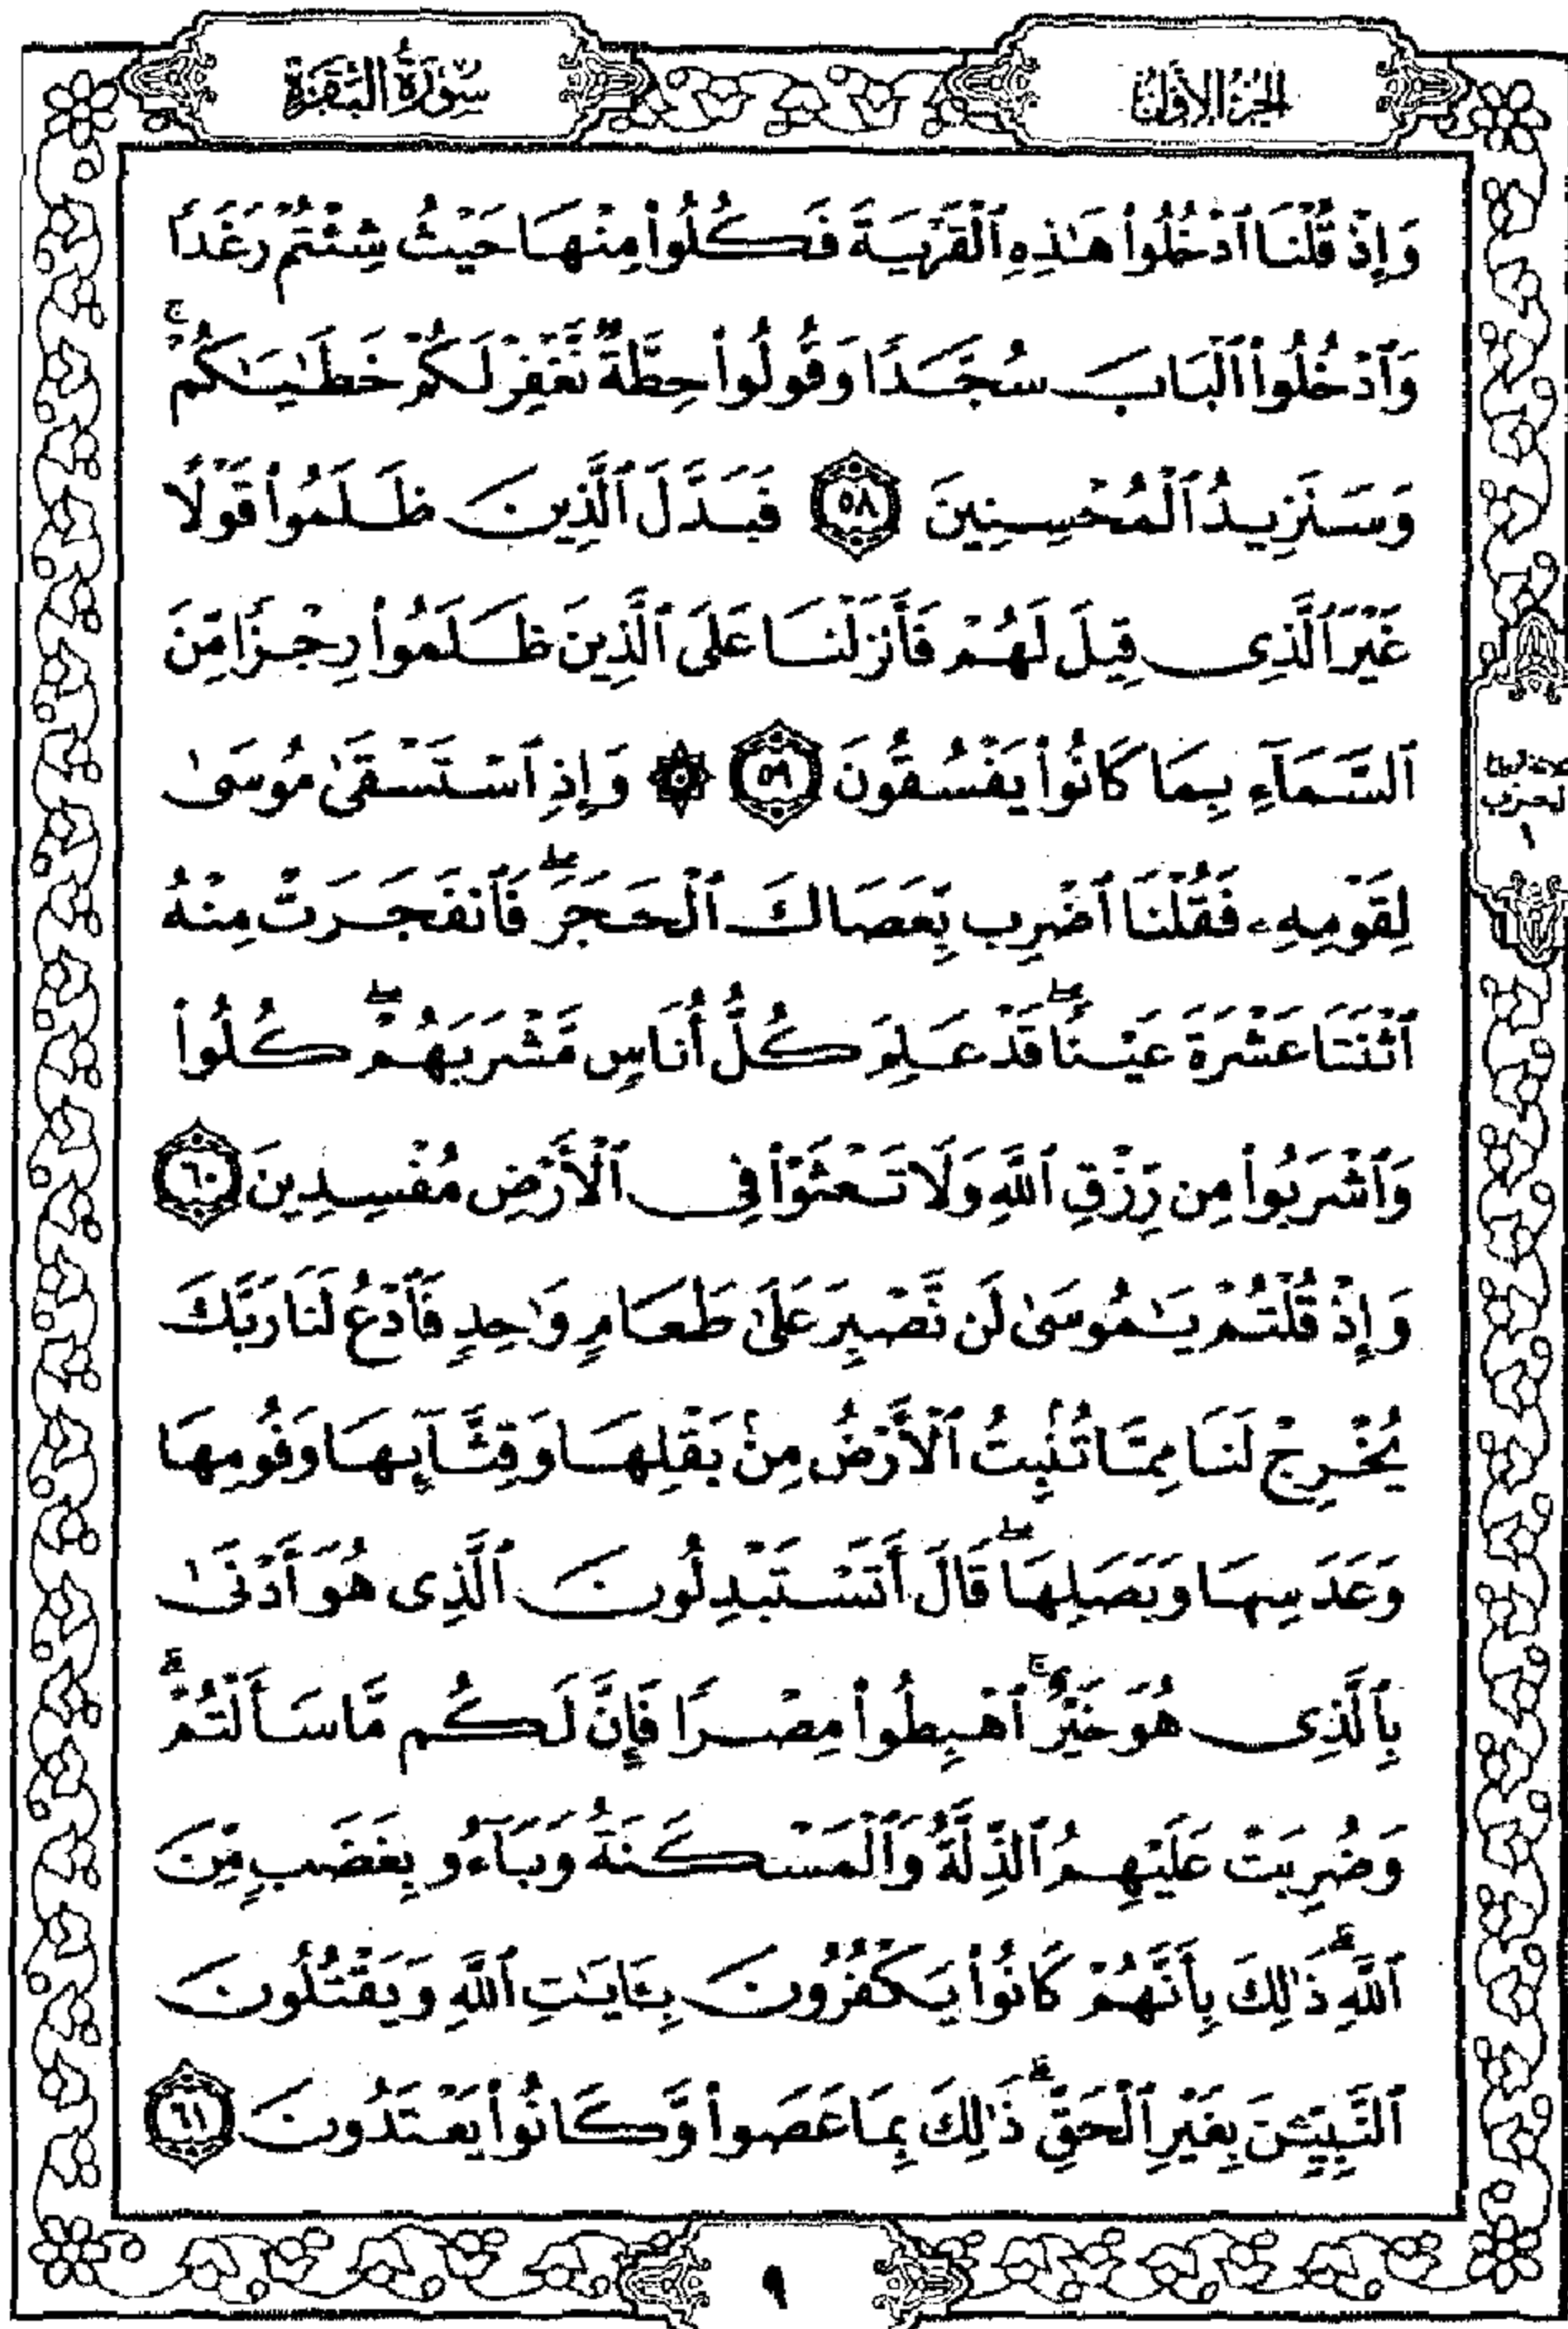 الجزء الأول
سورة البقرة
وَإِذْ قُلْنَا ٱدْخُلُوا۟ هَٰذِهِ ٱلْقَرْيَةَ فَكُلُوا۟ مِنْهَا حَيْثُ شِئْتُمْ رَغَدًا
وَٱدْخُلُوا۟ ٱلْبَابَ سُجَّدًا وَقُولُوا۟ حِطَّةٌ نَّغْفِرْ لَكُمْ خَطَٰيَٰكُمْ ۚ
وَسَنَزِيدُ ٱلْمُحْسِنِينَ ٥٨ فَبَدَّلَ ٱلَّذِينَ ظَلَمُوا۟ قَوْلًا
غَيْرَ ٱلَّذِى قِيلَ لَهُمْ فَأَنزَلْنَا عَلَى ٱلَّذِينَ ظَلَمُوا۟ رِجْزًا مِّنَ
ٱلسَّمَآءِ بِمَا كَانُوا۟ يَفْسُقُونَ ٥٩ ۞ وَإِذِ ٱسْتَسْقَىٰ مُوسَىٰ
لِقَوْمِهِۦ فَقُلْنَا ٱضْرِب بِّعَصَاكَ ٱلْحَجَرَ ۖ فَٱنفَجَرَتْ مِنْهُ
ٱثْنَتَا عَشْرَةَ عَيْنًا ۖ قَدْ عَلِمَ كُلُّ أُنَاسٍ مَّشْرَبَهُمْ ۖ كُلُوا۟
وَٱشْرَبُوا۟ مِن رِّزْقِ ٱللَّهِ وَلَا تَعْثَوْا۟ فِى ٱلْأَرْضِ مُفْسِدِينَ ٦٠
وَإِذْ قُلْتُمْ يَٰمُوسَىٰ لَن نَّصْبِرَ عَلَىٰ طَعَامٍ وَٰحِدٍ فَٱدْعُ لَنَا رَبَّكَ
يُخْرِجْ لَنَا مِمَّا تُنۢبِتُ ٱلْأَرْضُ مِنۢ بَقْلِهَا وَقِثَّآئِهَا وَفُومِهَا
وَعَدَسِهَا وَبَصَلِهَا ۖ قَالَ أَتَسْتَبْدِلُونَ ٱلَّذِى هُوَ أَدْنَىٰ
بِٱلَّذِى هُوَ خَيْرٌ ۚ ٱهْبِطُوا۟ مِصْرًا فَإِنَّ لَكُم مَّا سَأَلْتُمْ ۗ
وَضُرِبَتْ عَلَيْهِمُ ٱلذِّلَّةُ وَٱلْمَسْكَنَةُ وَبَآءُو بِغَضَبٍ مِّنَ
ٱللَّهِ ۗ ذَٰلِكَ بِأَنَّهُمْ كَانُوا۟ يَكْفُرُونَ بِـَٔايَٰتِ ٱللَّهِ وَيَقْتُلُونَ
ٱلنَّبِيِّـۧنَ بِغَيْرِ ٱلْحَقِّ ۗ ذَٰلِكَ بِمَا عَصَوا۟ وَّكَانُوا۟ يَعْتَدُونَ ٦١
الحزب
١
٩